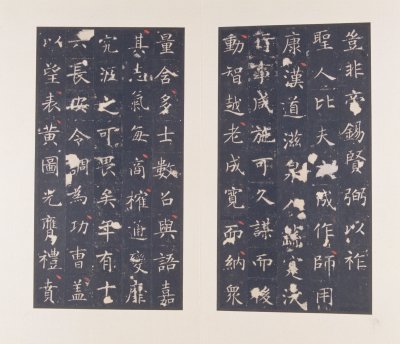 豈非帝錫賢弼以祚
聖人比夫成作師用
康漢道滋泉
行事成施可久謀而後
動智越老成寬而納衆
量含多士數召與語嘉
其志氣每商搉通變靡
究之可畏矣年有
六長安令調為功曹蓋
以望表黃圖光膺禮賁